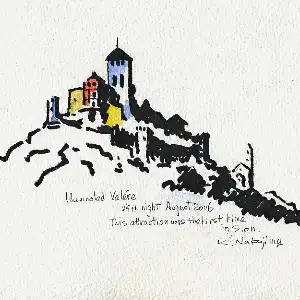 Illuminated Valére
25th night August 2006
This attraction was the first time
in Sion.